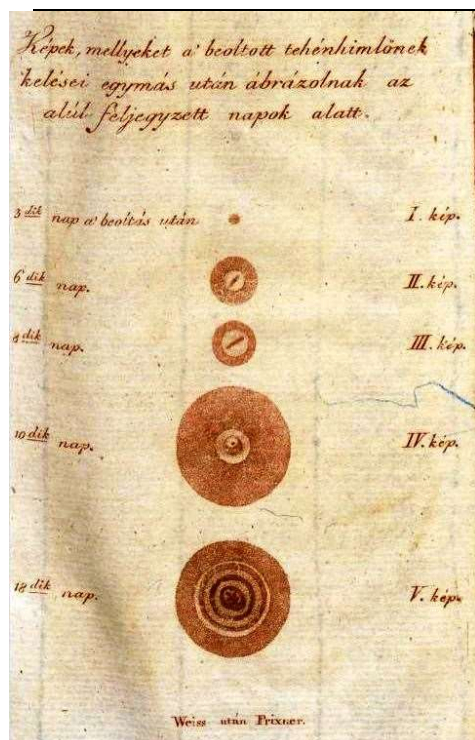 Képek, mellyeket a' beoltott tehénhimlőnek
kelései egymás után ábrázolnak az
alúl feljegyzett napok alatt.
3dik nap a' beoltás után I. kép.
6dik nap. II. kép.
8dik nap. III. kép.
10dik nap. IV. kép.
18dik nap. V. kép.
Weiss után Prixner.